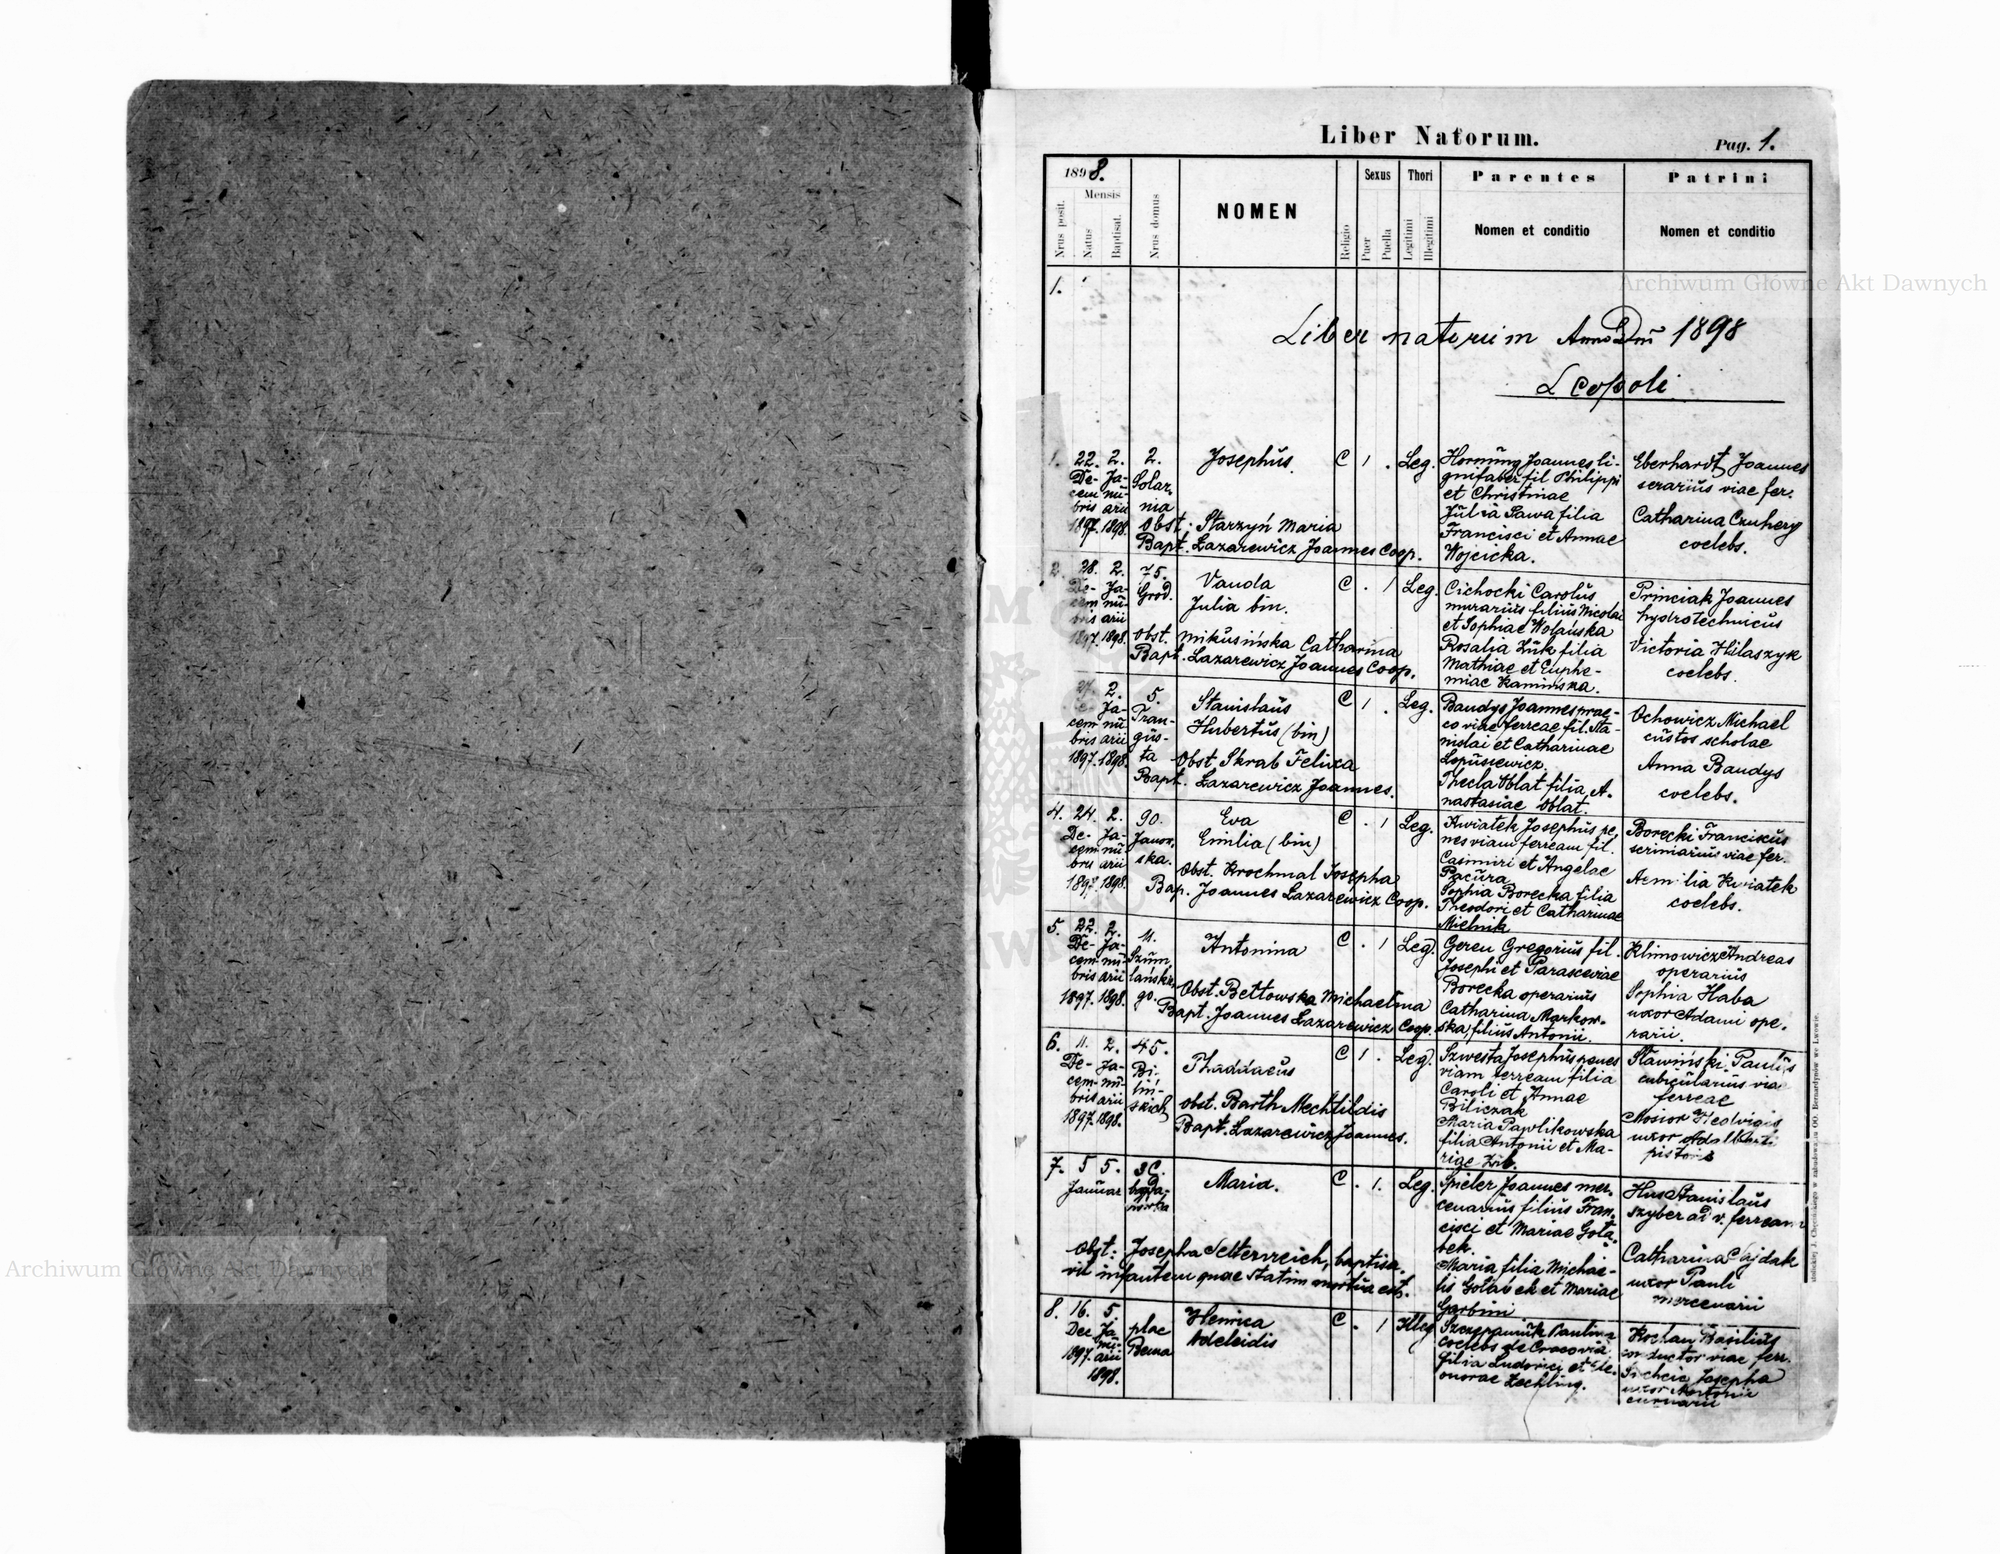 Liber Natorum.
Pag. 1.
1898.
Mensis
Nrus posit.
Natus
Baptisat.
Nrus domus
NOMEN
Religio
Sexus
Puer
Puella
Thori
Legitimi
Illegitimi
Parentes
Nomen et conditio
Patrini
Nomen et conditio
Archiwum Główne Akt Dawnych
1.
Liber natorum Anno Dni 1898
Leopoli
1. 22. De-cem-bris 1897. 2. Ja-nu-arii 1898. 2. Solar-nia
Josephus.
C 1 . Leg.
Obst. Starzyń Maria
Bapt. Lazarewicz Joannes Coop.
Hornung Joannes li-
gnifaber fil Philippi
et Christinae
Julia Sawa filia
Francisci et Annae
Wojcicka.
Eberhardt Joannes
serarius viae fer.
Catharina
coelebs.
2. 28. De-cem-bris 1897. 2. Ja-nu-arii 1898. 75. Grod.
Vanda
Julia bin.
C . 1 Leg.
Obst. Mikusińska Catharina
Bapt. Lazarewicz Joannes Coop.
Cichocki Carolus
murarius filius Nicolai
et Sophiae Wolańska
Rosalia Żuk filia
Mathiae et Euphe-
miae Kamińska.
Princiak Joannes
hydrotechnicus
Victoria Hilaszyk
coelebs.
27. De-cem-bris 1897. 2. Ja-nu-arii 1898. 5. Fran-gus-ta
Stanislaus
Hubertus (bin)
C 1 . Leg.
Obst. Skrab Felixa
Bapt. Lazarewicz Joannes.
Baudys Joannes prae-
co viae ferreae fil. Sta-
nislai et Catharinae
Lopusiewicz.
Thecla Oblat filia A-
nastasiae Oblat.
Ochowicz Michael
custos scholae
Anna Baudys
coelebs.
4. 24. De-cem-bris 1897. 2. Ja-nu-arii 1898. 90. Janow-ska.
Eva
Emilia (bin)
C . 1 Leg.
Obst. Krochmal Josepha
Bap. Joannes Lazarewicz Coop.
Kwiatek Josephus pe-
nes viam ferream fil.
Casimiri et Angelae
Pacura
Sophia Borecka filia
Theodori et Catharinae
Mielnik
Borecki Franciscus
scriniarius viae fer.
Aemilia Kwiatek
coelebs.
5. 22. De-cem-bris 1897. 2. Ja-nu-arii 1898. 11. Szum-lańskie-go.
Antonina
C . 1 Leg.
Obst. Bettowska Michaelina
Bapt. Joannes Lazarewicz Coop.
Geren Gregorius fil.
Josephi et Parasceviae
Borecka operarius
Catharina Markow-
ska filius Antonii.
Klimowicz Andreas
operarius
Sophia Haba
uxor Adami ope-
rarii.
6. 11. De-cem-bris 1897. 2. Ja-nu-arii 1898. 45. Bi-liń-skich
Thaddaeus
C 1 . Leg.
Obst. Barth Mechtildis
Bapt. Lazarewicz Joannes.
Szwesta Josephus penes
viam ferream filia
Caroli et Annae
Biliczak
Maria Pawlikowska
filia Antonii et Ma-
riae
Sławiński Paulus
cubicularius viae
ferreae
Hedvigis
uxor Adalberti
pistoris
7. 5 5. Januar
Maria.
C . 1. Leg.
Obst. Josepha Selterreich, baptisa-
vit infantem quae statim mortua est.
Spieler Joannes mer-
cenarius filius Fran-
cisci et Mariae Gołą-
bek.
Maria filia Michae-
lis Gołąbek et Mariae
Garbini
Hus Stanislaus
szyber ad v. ferream
Catharina Pajdak
uxor Pauli
mercenarii
8. 16. Dec 1897. 5. Ja-nu-arii 1898. plac Bema
Henrica
Adeleidis
C . 1 Illeg
Szczepaniuk Paulina
coelebs de Cracovia
filia Ludovici et Ele-
onorae Zechling.
Kochan Basilius
conductor viae ferr.
Josepha
uxor Antonii
Archiwum Główne Akt Dawnych